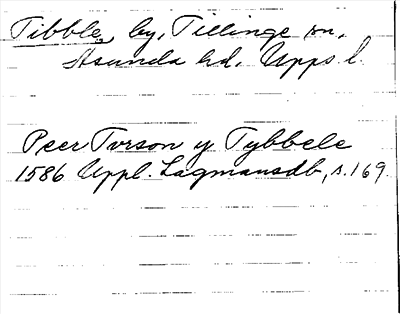 Tibble, by, Tillinge sn,
Åsunda hd, Upps. l.
Peer Turson y Tybbele
1586 Uppl. Lagmansdb, s. 169